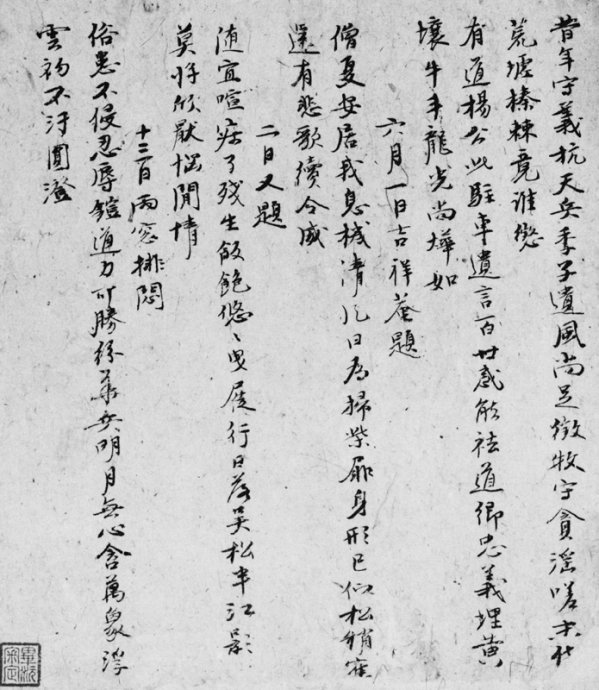 昔年守義抗天兵季子遺風尚足徵牧守貪淫嗟末代
荒墟榛棘竟誰懲
有道楊公此駐車遺言百世感能祛道鄉忠義埋黃
壤牛斗龍光尚燁如
六月一日吉祥菴題
僧夏安居我息機清凡日為掃柴扉身形已似松稍瘦
還有悲歌續令威
二日又題
隨宜喧寂了殘生飯飽悠、曳屐行日落吳松半江影
莫將欣厭惱閒情
十三日雨窓排悶
俗患不侵忍辱鎧道力可勝明月無心含萬象浮
雲初不汙圓澄